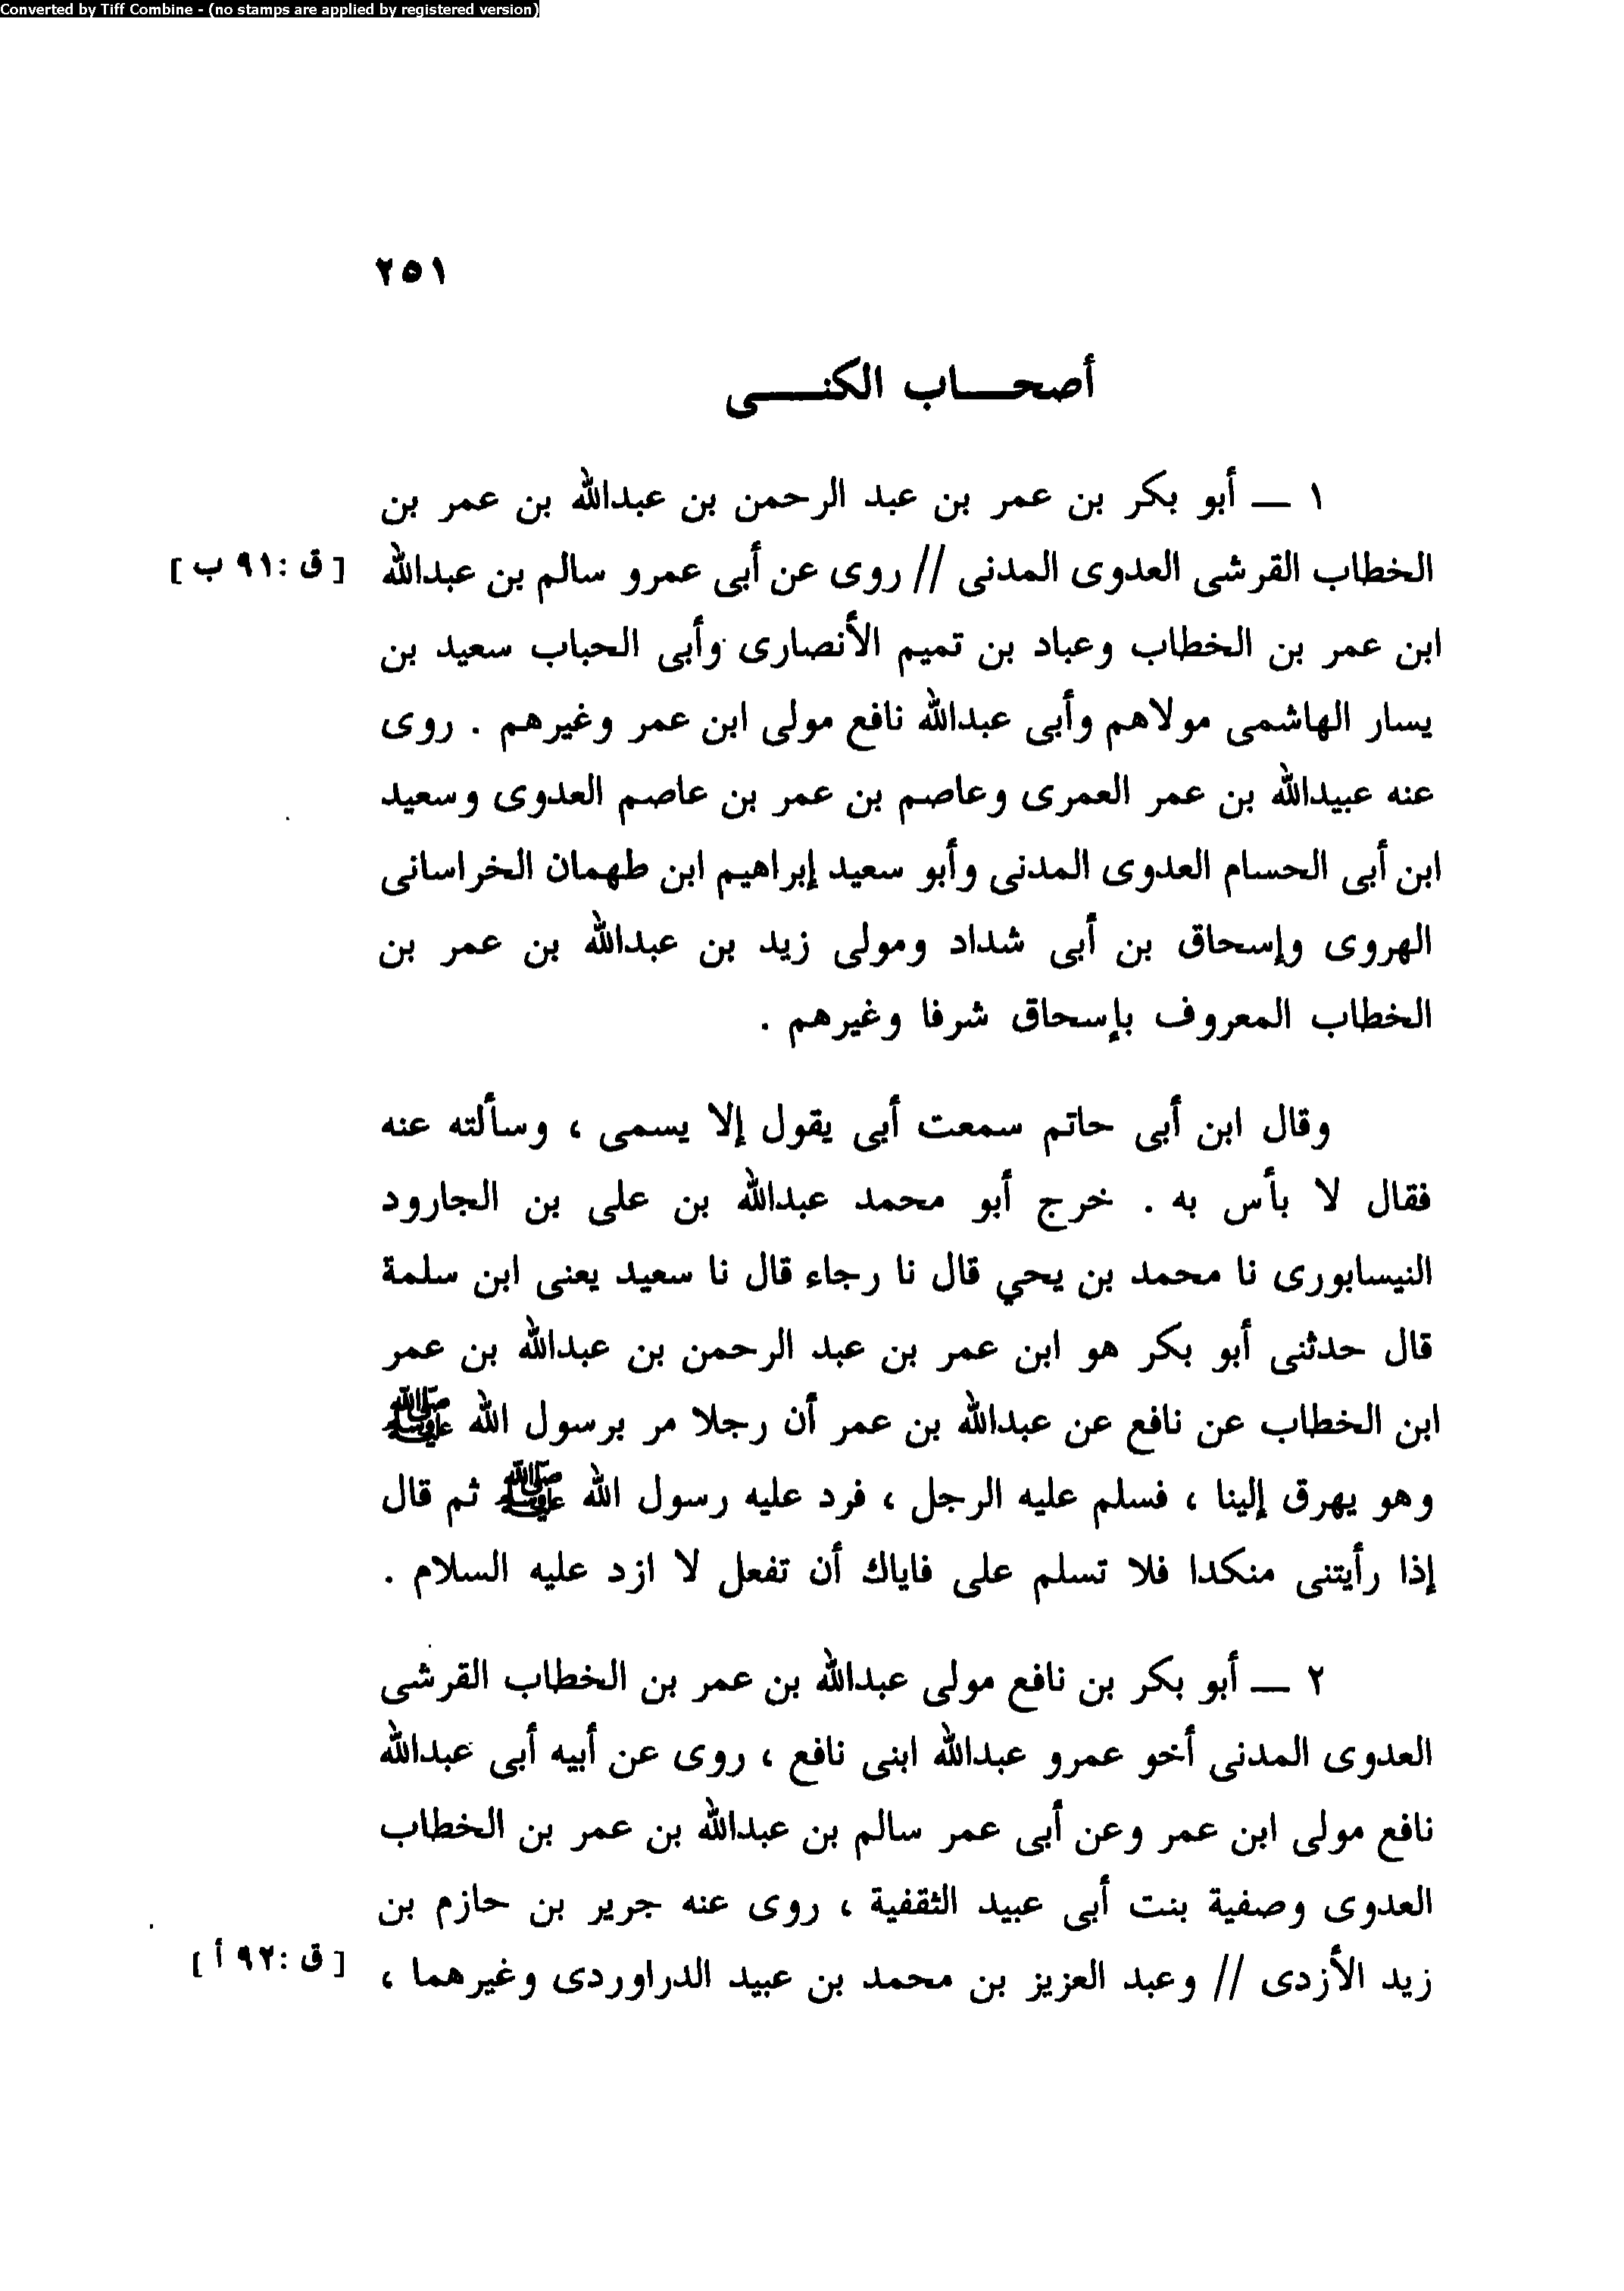 Converted by Tiff Combine - (no stamps are applied by registered version)
٢٥١
أصحاب الكنى
١ ــ أبو بكر بن عمر بن عبد الرحمن بن عبدالله بن عمر بن
الخطاب القرشى العدوى المدنى // روى عن أبى عمرو سالم بن عبدالله [ ق : ٩١ ب ]
ابن عمر بن الخطاب وعباد بن تميم الأنصارى وأبى الحباب سعيد بن
يسار الهاشمى مولاهم وأبى عبدالله نافع مولى ابن عمر وغيرهم . روى
عنه عبيدالله بن عمر العمرى وعاصم بن عمر بن عاصم العدوى وسعيد
ابن أبى الحسام العدوى المدنى وأبو سعيد إبراهيم ابن طهمان الخراسانى
الهروى وإسحاق بن أبى شداد ومولى زيد بن عبدالله بن عمر بن
الخطاب المعروف بإسحاق شرفا وغيرهم .
وقال ابن أبى حاتم سمعت أبى يقول إلا يسمى ، وسألته عنه
فقال لا بأس به . خرج أبو محمد عبدالله بن على بن الجارود
النيسابورى نا محمد بن يحي قال نا رجاء قال نا سعيد يعنى ابن سلمة
قال حدثنى أبو بكر هو ابن عمر بن عبد الرحمن بن عبدالله بن عمر
ابن الخطاب عن نافع عن عبدالله بن عمر أن رجلا مر برسول الله ﷺ
وهو يهرق إلينا ، فسلم عليه الرجل ، فرد عليه رسول الله ﷺ ثم قال
إذا رأيتنى منكدا فلا تسلم على فاياك أن تفعل لا ازد عليه السلام .
٢ ــ أبو بكر بن نافع مولى عبدالله بن عمر بن الخطاب القرشى
العدوى المدنى أخو عمرو عبدالله ابنى نافع ، روى عن أبيه أبى عبدالله
نافع مولى ابن عمر وعن أبى عمر سالم بن عبدالله بن عمر بن الخطاب
العدوى وصفية بنت أبى عبيد الثقفية ، روى عنه جرير بن حازم بن
زيد الأزدى // وعبد العزيز بن محمد بن عبيد الدراوردى وغيرهما ، [ ق : ٩٢ أ ]